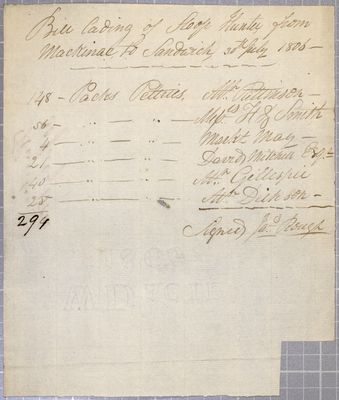 Bill Lading of Sloop Hunter from
Mackinac to Sandwich 30th July 1806 —
148 – Packs Peltries. Mr. Pattinson —
56 – " " – " – Messrs H & Smith
4 – " " – " – Market May —
21 – " " – " – David Mitchell Esqr
40 – " " – " – Mr. Gillespie
25 – " " – " – Mr. Dickson —
294
Signed Jas. Rough